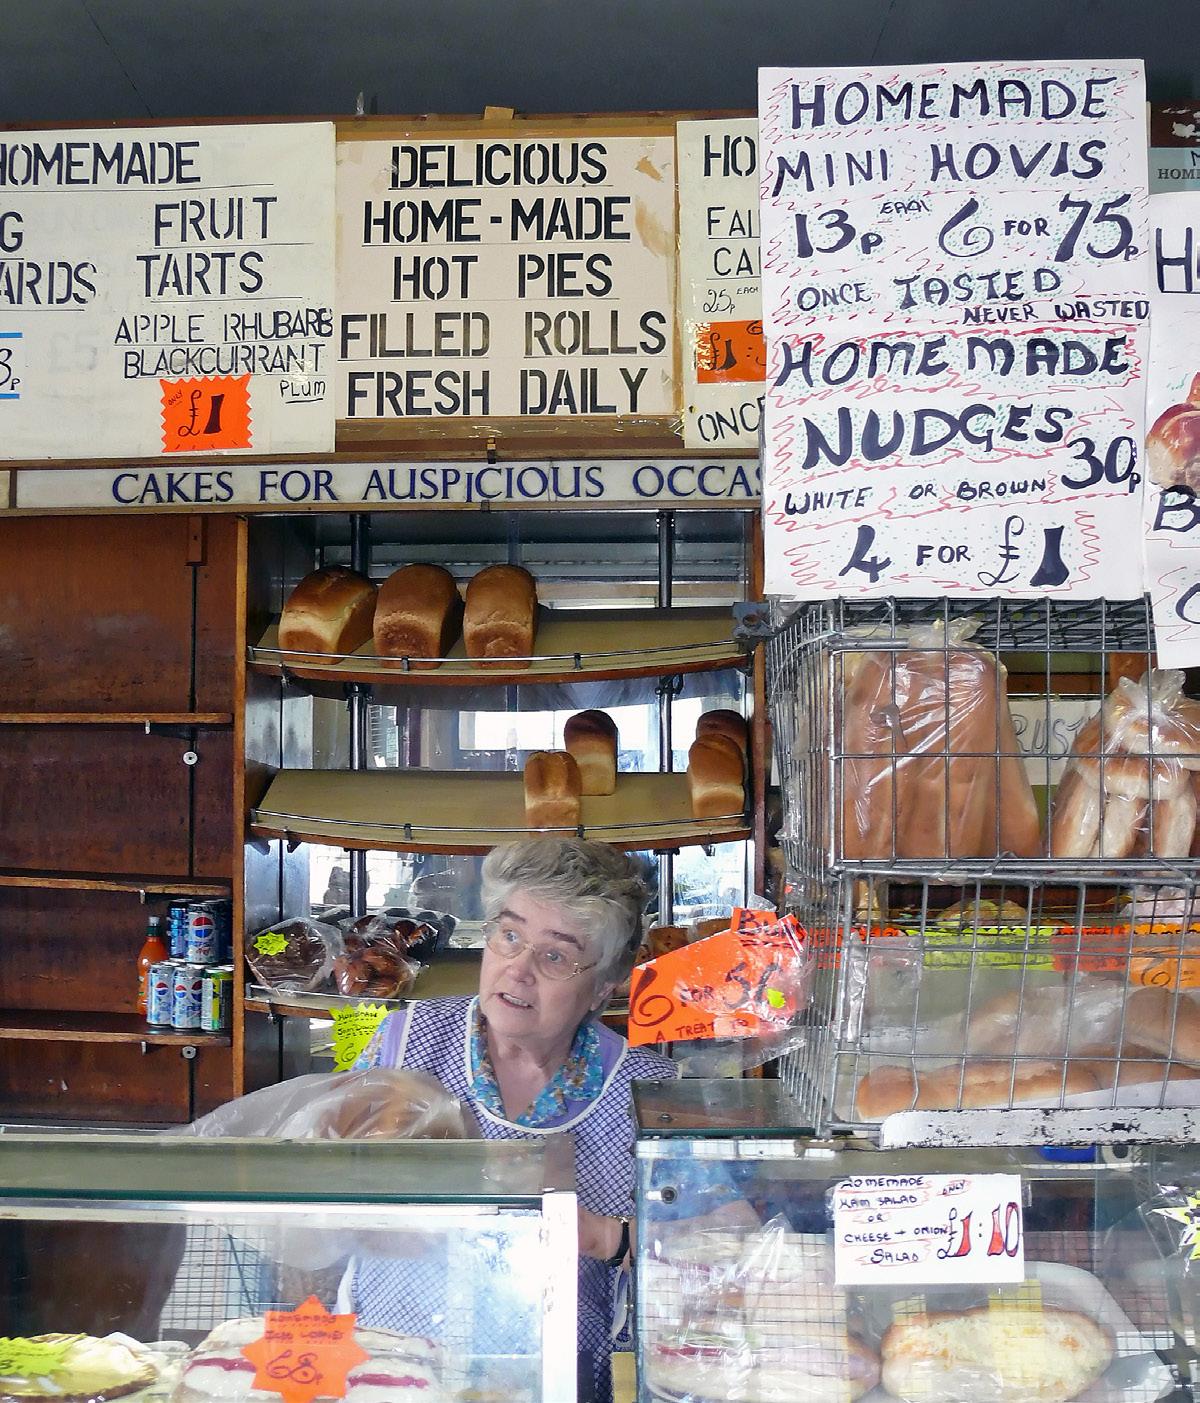 HOMEMADE
FRUIT
TARTS
APPLE RHUBARB
BLACKCURRANT
PLUM
ONLY
£1
DELICIOUS
HOME-MADE
HOT PIES
FILLED ROLLS
FRESH DAILY
25p EACH
£1
HOMEMADE
MINI HOVIS
13p EACH 6 FOR 75p
ONCE TASTED
NEVER WASTED
HOMEMADE
NUDGES
WHITE OR BROWN 30p
4 FOR £1
CAKES FOR AUSPICIOUS
BUNS
6 FOR 56
A TREAT
6
HOMEMADE
HAM SALAD
OR
CHEESE + ONION
SALAD
ONLY
£1:10
HOMEMADE
68p